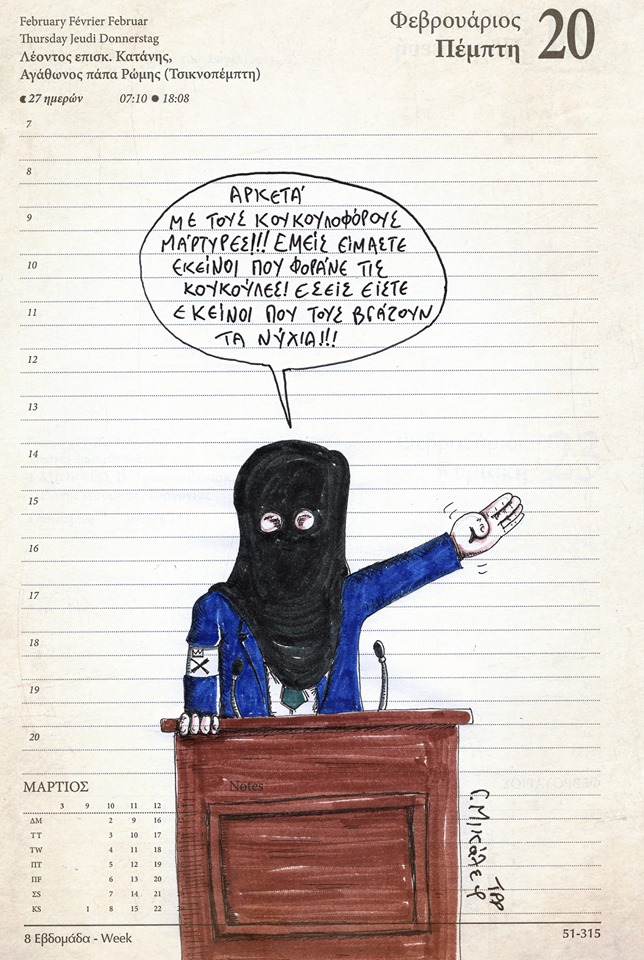 February Février Februar
Thursday Jeudi Donnerstag
Λέοντος επισκ. Κατάνης,
Αγάθωνος πάπα Ρώμης (Τσικνοπέμπτη)
27 ημερών 07:10 ● 18:08
Φεβρουάριος
Πέμπτη 20
7
8
ΑΡΚΕΤΆ
9
ΜΕ ΤΟΥΣ ΚΟΥΚΟΥΛΟΦΌΡΟΥΣ
ΜΆΡΤΥΡΕΣ!!! ΕΜΕΊΣ ΕΊΜΑΣΤΕ
10
ΕΚΕΊΝΟΙ ΠΟΥ ΦΟΡΆΝΕ ΤΙΣ
ΚΟΥΚΟΎΛΕΣ! ΕΣΕΊΣ ΕΊΣΤΕ
11
ΕΚΕΊΝΟΙ ΠΟΥ ΤΟΥΣ ΒΓΆΖΟΥΝ
ΤΑ ΝΎΧΙΑ!!!
12
13
14
15
16
17
18
19
20
ΜΑΡΤΙΟΣ
Notes
3 9 10 11 12
ΔΜ 2 9 16
ΤΤ 3 10 17
TW 4 11 18
ΠΤ 5 12 19
ΠF 6 13 20
ΣS 7 14 21
KS 1 8 15 22
Γ. Μικάλεφ
TPP
8 Εβδομάδα - Week
51-315